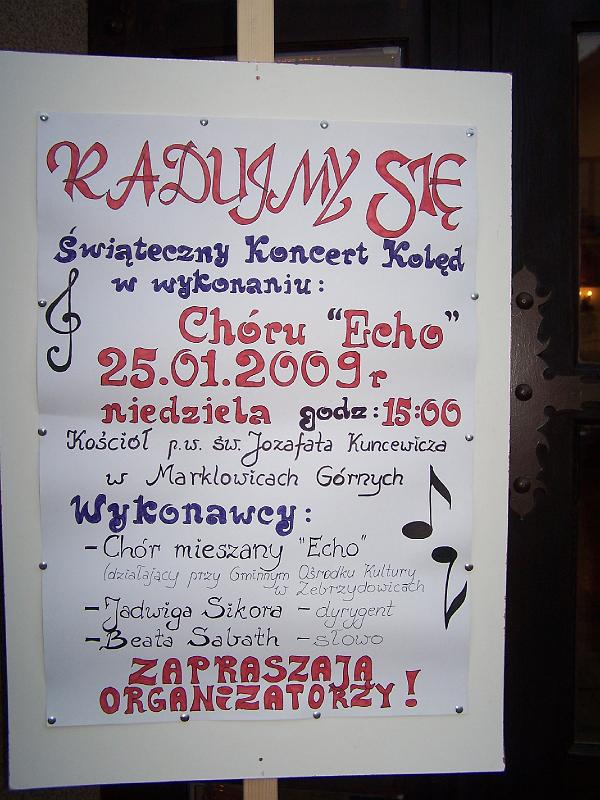 RADUJMY SIĘ
Świąteczny Koncert Kolęd
w wykonaniu:
Chóru "Echo"
25.01.2009 r
niedziela godz: 15:00
Kościół p.w. św. Jozafata Kuncewicza
w Marklowicach Górnych
Wykonawcy:
- Chór mieszany "Echo"
(działający przy Gminnym Ośrodku Kultury
w Zebrzydowicach
- Jadwiga Sikora - dyrygent
- Beata Sabath - słowo
ZAPRASZAJĄ
ORGANIZATORZY!